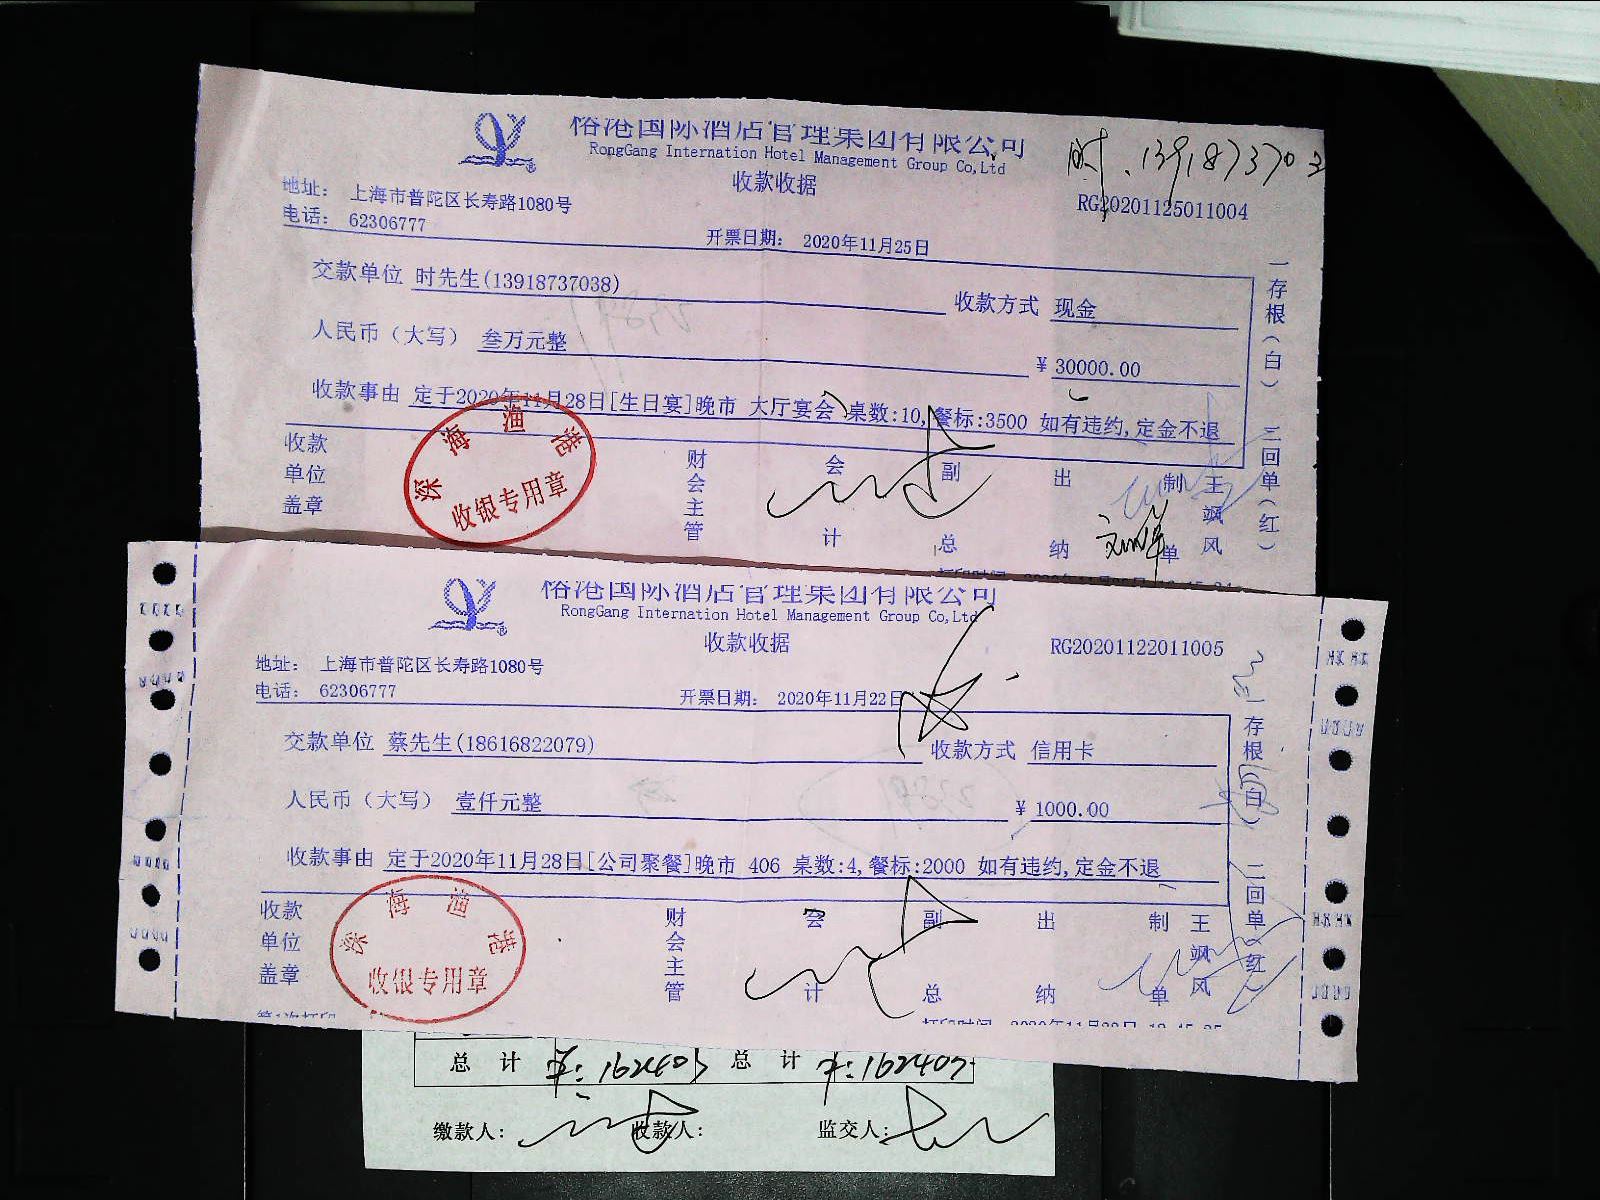 榕港国际酒店管理集团有限公司
RongGang Internation Hotel Management Group Co,Ltd
收款收据
RG20201125011004
地址： 上海市普陀区长寿路1080号
电话： 62306777
开票日期： 2020年11月25日
交款单位 时先生(13918737038)
收款方式 现金
人民币（大写） 叁万元整
¥ 30000.00
收款事由 定于2020年11月28日[生日宴]晚市 大厅宴会 桌数:10,餐标:3500 如有违约,定金不退
一存根（白） 二回单（红）
收款单位盖章
深海渔港
收银专用章
财会主管
会计
副总
出纳
制单
王飒风
榕港国际酒店管理集团有限公司
RongGang Internation Hotel Management Group Co,Ltd
收款收据
RG20201122011005
地址： 上海市普陀区长寿路1080号
电话： 62306777
开票日期： 2020年11月22日
交款单位 蔡先生(18616822079)
收款方式 信用卡
人民币（大写） 壹仟元整
¥ 1000.00
收款事由 定于2020年11月28日[公司聚餐]晚市 406 桌数:4,餐标:2000 如有违约,定金不退
一存根（白） 二回单（红）
收款单位盖章
深海渔港
收银专用章
财会主管
会计
副总
出纳
制单
王飒风
总 计
总 计
缴款人: 收款人: 监交人: